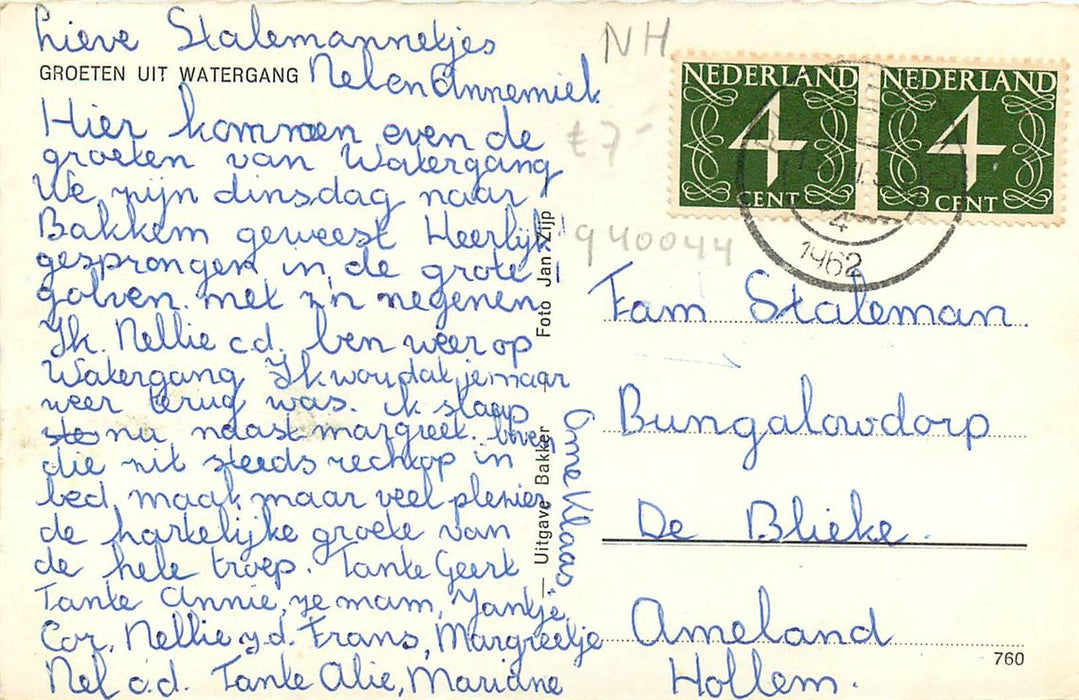 Lieve Stalemannetjes
GROETEN UIT WATERGANG
Nel en Annemiek
Hier kommen even de
groeten van Watergang
We zijn dinsdag naar
Bakkem geweest Heerlijk
gesprongen in de grote
golven. met z'n negenen
Ik. Nellie c.d. ben weer op
Watergang Ik wou dat je maar
weer terug was. ik slaap
nu naast margreet.
die zit steeds rechtop in
bed, maak maar veel plezier
de hartelijke groete van
de hele troep. Tante Geert
Tante Annie, je mam, Jantje,
Cor, Nellie y.d. Frans, Margreetje
Nel c.d. Tante Alie, Mariane
Ome Klaas.
— Uitgave Bakker — Foto Jan Zijp
NH
£7-
940044
NEDERLAND
4
CENT
NEDERLAND
4
CENT
4
1962
Fam Staleman.
Bungalowdorp
De Blieke.
Ameland
760
Hollem.